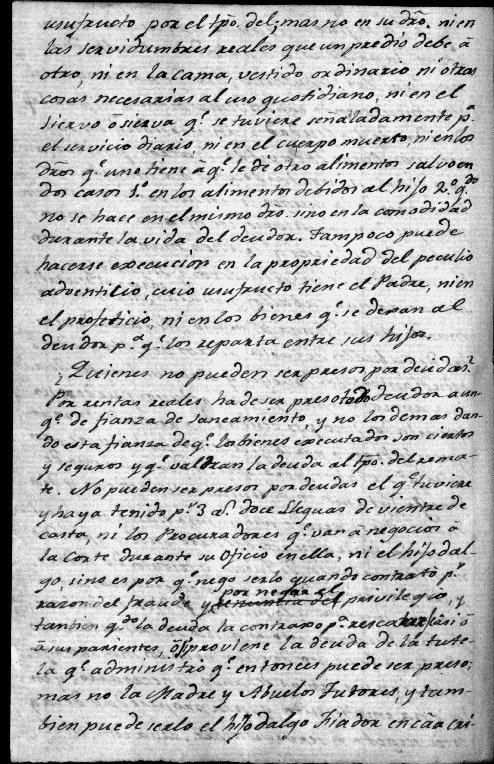 usufructo por el tpo. del; mas no en su dro. ni en
las servidumbres reales que un predio debe à
otro, ni en la cama, vestido ordinario ni otras
cosas necesarias al uso quotidiano, ni en el
siervo ò sierva q.e se tuviere señaladamente p.a
el servicio diario, ni en el cuerpo muerto, ni en los
dros q.e uno tiene à q.e le dè otro alimentos salvo en
dos casos 1.o en los alimentos debidos al hijo 2.o q.do
no se hace en el mismo dro. sino en la comodidad
durante la vida del deudor. Tampoco puede
hacerse execucion en la propriedad del peculio
adventilio, cuio usufructo tiene el Padre, ni en
el profecticio, ni en los bienes q.e se dexan al
deudor p.a q.e los reparta entre sus hijos.
¿Quienes no pueden ser presos por deudas?
Por rentas reales ha de ser preso todo deudor aun
q.e de fianza de saneamiento, y no los demas dan-
do esta fianza de q.e los bienes executados son ciertos
y seguros y q.e valdran la deuda al tpo. del rema-
te. No pueden ser presos por deudas el q.e tuviere
y haya tenido p.r 3 a.s doce Lleguas de vientre de
casta, ni los Procuradores q.e van à negocios à
la Corte durante su Oficio en ella, ni el hijo dal-
go, sino es por q.e nego serlo quando contratò p.r
razon del fraude y por negar el privilegio, y
tambien q.do la deuda la contraxo p.a rescatar
à sus parientes, ò si proviene la deuda de la tute-
la q.e administrò q.e entonces puede ser preso;
mas no la Madre y Abuelos Tutores, y tam-
bien puede serlo el hijo dalgo Fiador en caa cri-